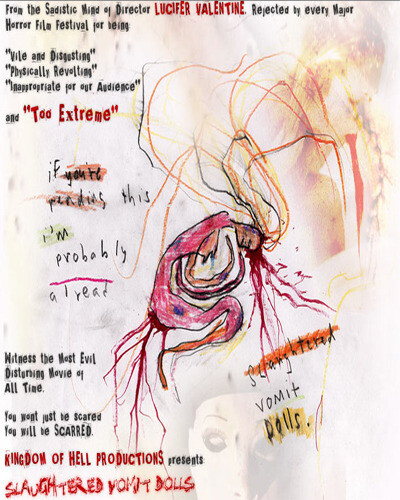 From the Sadistic Mind of Director LUCIFER VALENTINE. Rejected by every Major
Horror Film Festival for being:
"Vile and Disgusting"
"Physically Revolting"
"Inappropriate for our Audience"
and "Too Extreme"
if you're
this
i'm
probably
alread
slaughtered
vomit
dolls.
Witness the Most Evil
Disturbing Movie of
All Time.
You wont just be scared
You will be SCARRED.
KINGDOM OF HELL PRODUCTIONS presents
SLAUGHTERED VOMIT DOLLS